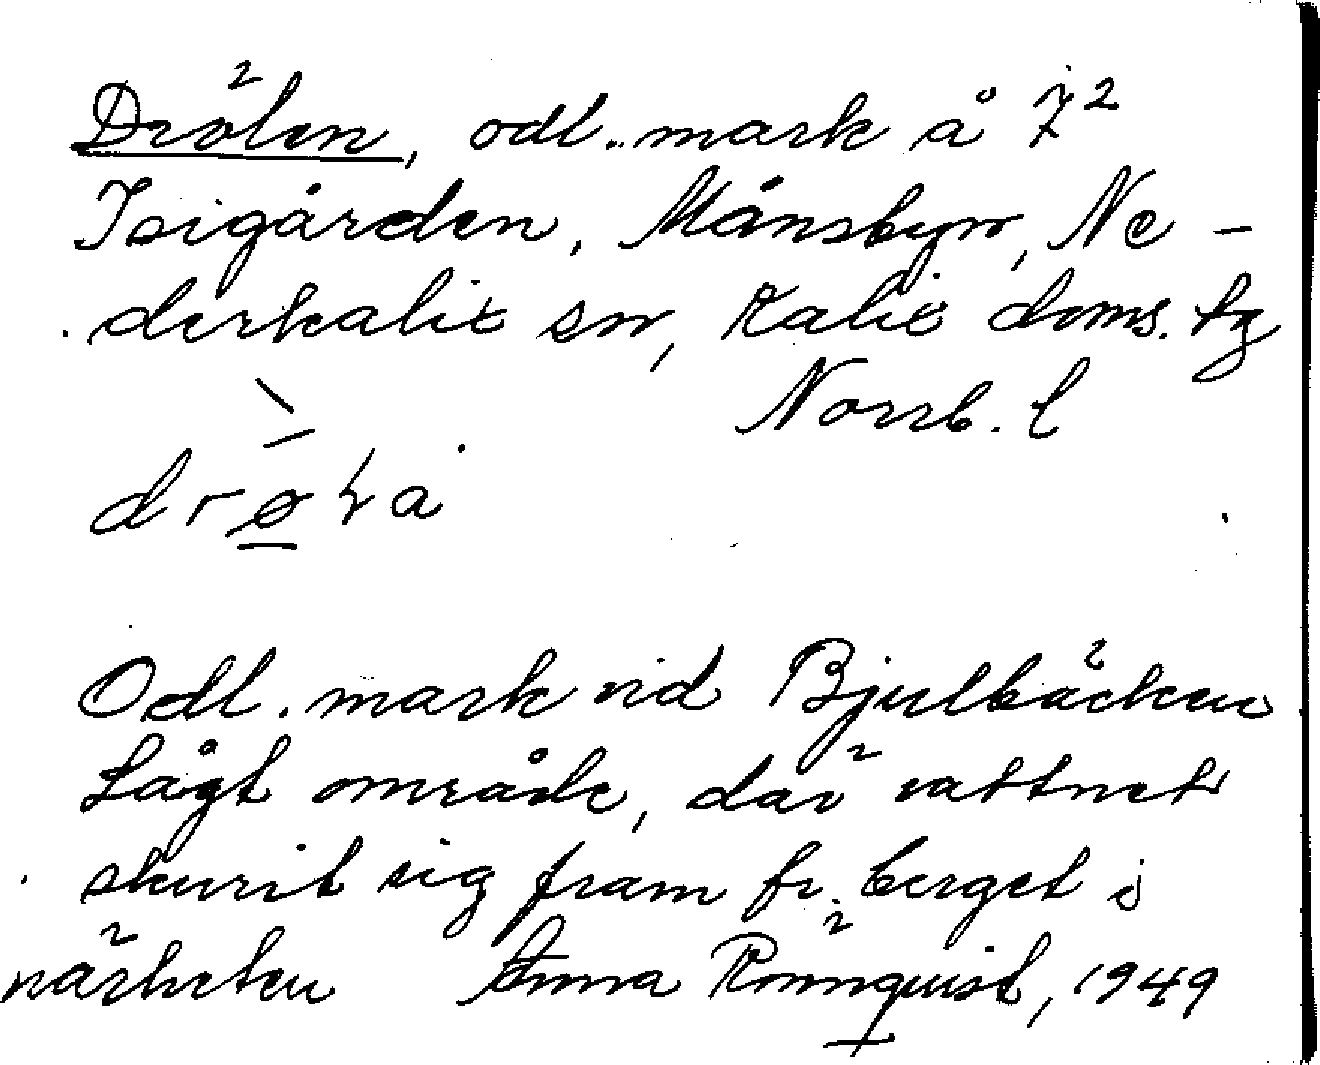 Drölen, odl. mark å 7²
Isigården, Månsbyn, Ne-
derkalix sn, Kalix doms. tg
Norrb. l
Odl. mark vid Bjulbäcken
Lågt område, där vattnet
skurit sig fram fr. berget i
närheten Anna Rönnquist, 1949